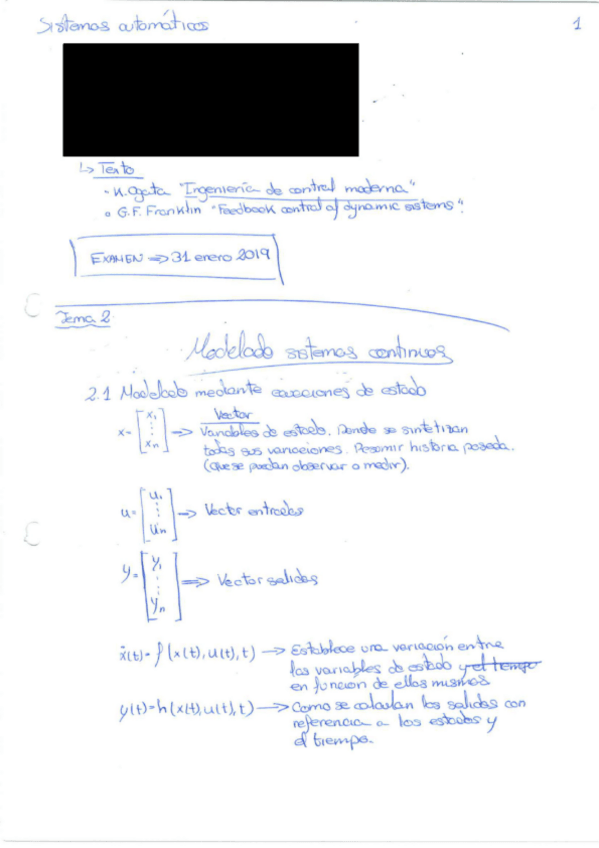 Sistemas automáticos
1
↳ Texto
• K. Ogata "Ingeniería de control moderna"
• G.F. Franklin "Feedback control of dynamic sistems".
EXAMEN ⇒ 31 enero 2019
Tema 2
Modelado sistemas continuos
2.1 Modelado mediante ecuaciones de estado
x = [x₁ ⋮ xₙ] ⇒ Vector
Variables de estado. Donde se sintetizan
todas sus variaciones. Resumir historia pasada.
(que se puedan observar o medir).
u = [u₁ ⋮ uₙ] → Vector entradas
y = [y₁ ⋮ yₙ] ⇒ Vector salidas
ẋ(t) = f(x(t), u(t), t) → Establece una variación entre
las variables de estado y el tiempo
en función de ellas mismas
y(t) = h(x(t), u(t), t) → Como se calculan las salidas con
referencia a los estados y
el tiempo.